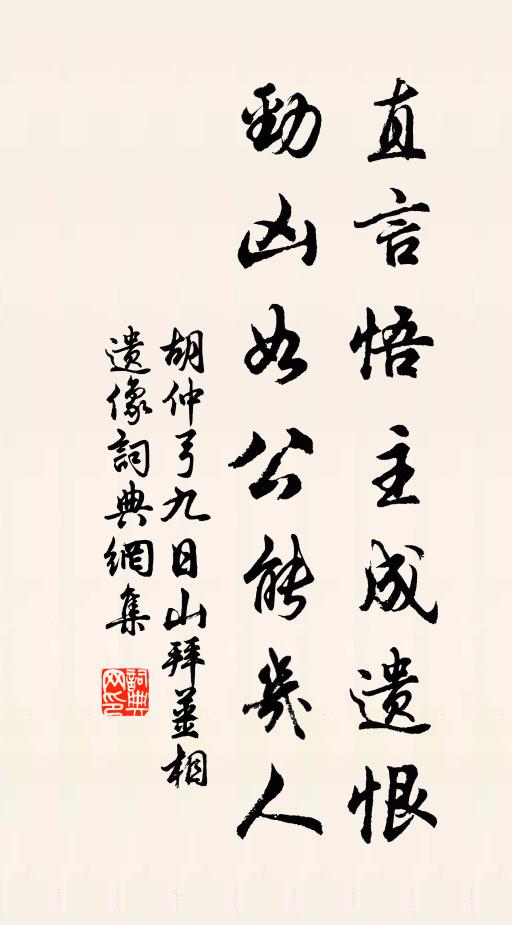 直言悟主成遺恨
勁凶如公能幾人
胡仲弓九日山拜姜相
遺像詞典網集
詞典
网印